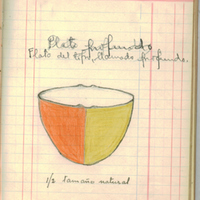 Plato profundo
Plato del tipo, llamado profundo.
1/2 tamaño natural